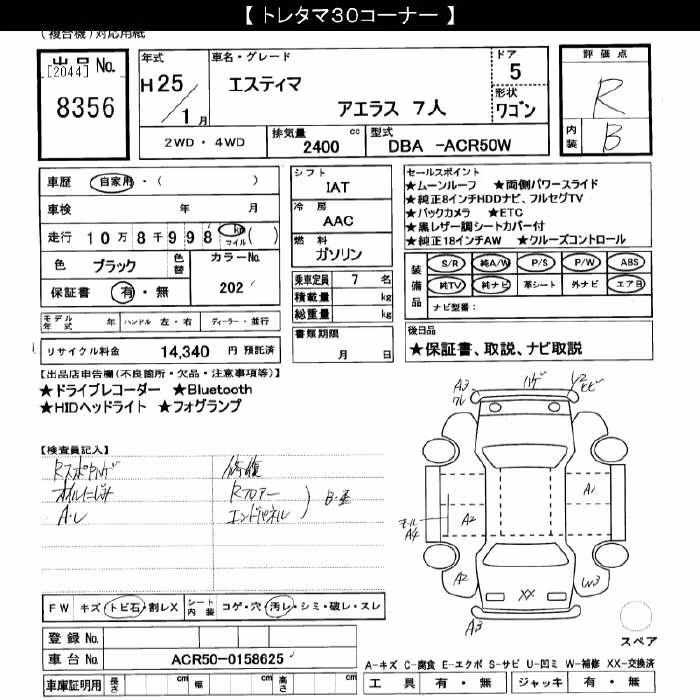 【 トレタマ30コーナー 】
(複合機)対応用紙
出品 No.
[2044]
8356
年式
H 25
1 月
車名・グレード
エスティマ
アエラス 7人
ドア
5
形状
ワゴン
評価点
R
内装
B
2WD・4WD
排気量
2400 cc
型式
DBA -ACR50W
車歴 自家用・( )
車検 年 月
走行 10万8千998 km マイル ( )
色 ブラック 色替
カラーNo.
202
保証書 有・無
シフト
IAT
冷房
AAC
燃料
ガソリン
乗車定員 7 名
積載量 kg
総重量 kg
書類期限
月 日
セールスポイント
★ムーンルーフ ★両側パワースライド
★純正8インチHDDナビ、フルセグTV
★バックカメラ ★ETC
★黒レザー調シートカバー付
★純正18インチAW ★クルーズコントロール
装備品
S/R 純A/W P/S P/W ABS
純TV 純ナビ 革シート 外ナビ エアB
ナビ型番:
モデル年式 年 ハンドル 左・右 ディーラー・並行
リサイクル料金 14,340 円 預託済
後日品
★保証書、取説、ナビ取説
【出品店申告欄(不良箇所・欠品・注意事項等)】
★ドライブレコーダー ★Bluetooth
★HIDヘッドライト ★フォグランプ
【検査員記入】
オイルにじみ
A・L
修復
Rフロアー
エンドパネル
B・歪
A3
ワレ
ハゲ
Y2
ヒビ
モール
A4
A2
A1
A2
W3
XX
A3
スペア
FW キズ・トビ石・割レX
シート内装 コゲ・穴・汚レ・シミ・破レ・スレ
登録 No.
車台 No. ACR50-0158625
車庫証明用 長さ cm 幅 cm 高さ cm
A-キズ C-腐食 E-エクボ S-サビ U-凹ミ W-補修 XX-交換済
工具 有・無 ジャッキ 有・無